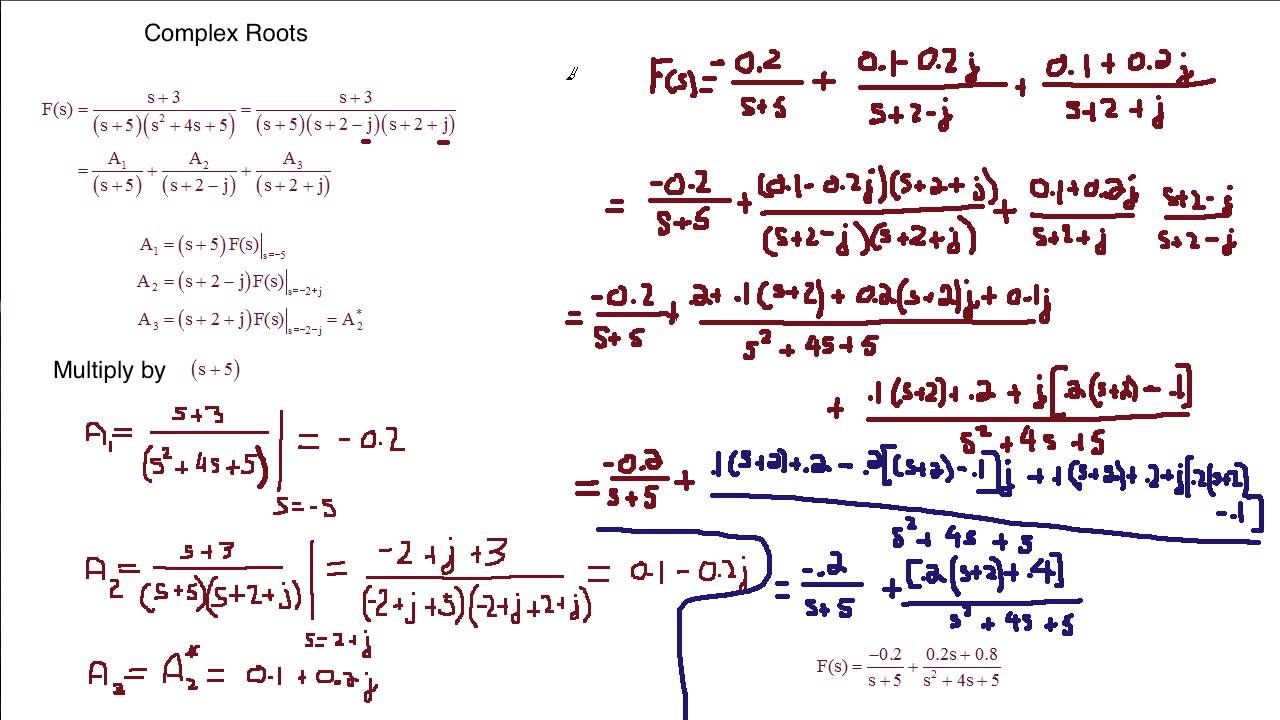 Complex Roots
F(s) = (s+3)/((s+5)(s²+4s+5)) = (s+3)/((s+5)(s+2−j)(s+2+j))
= A₁/(s+5) + A₂/(s+2−j) + A₃/(s+2+j)
A₁ = (s+5)F(s)|s=−5
A₂ = (s+2−j)F(s)|s=−2+j
A₃ = (s+2+j)F(s)|s=−2−j = A₂*
Multiply by (s+5)
A₁ = (s+3)/(s²+4s+5)|s=−5 = −0.2
A₂ = (s+3)/((s+5)(s+2+j))|s=2+j = (−2+j+3)/((−2+j+5)(−2+j+2+j)) = 0.1−0.2j
A₃ = A₂* = 0.1+0.2j
F(s) = −0.2/(s+5) + (0.1−0.2j)/(s+2−j) + (0.1+0.2j)/(s+2+j)
= −0.2/(s+5) + (0.1−0.2j)(s+2+j)/((s+2−j)(s+2+j)) + (0.1+0.2j)/(s+2+j) (s+2−j)/(s+2−j)
= −0.2/(s+5) + (.2+.1(s+2)+0.2(s+2)j+0.1j)/(s²+4s+5)
+ (.1(s+2)+.2+j[.2(s+2)−.1])/(s²+4s+5)
= −0.2/(s+5) + (.1(s+2)+.2−.2[(s+2)−.1]j+.1(s+2)+.2+j[.2(s+2)−.1])/(s²+4s+5)
= −.2/(s+5) + [.2(s+2)+.4]/(s²+4s+5)
F(s) = −0.2/(s+5) + (0.2s+0.8)/(s²+4s+5)